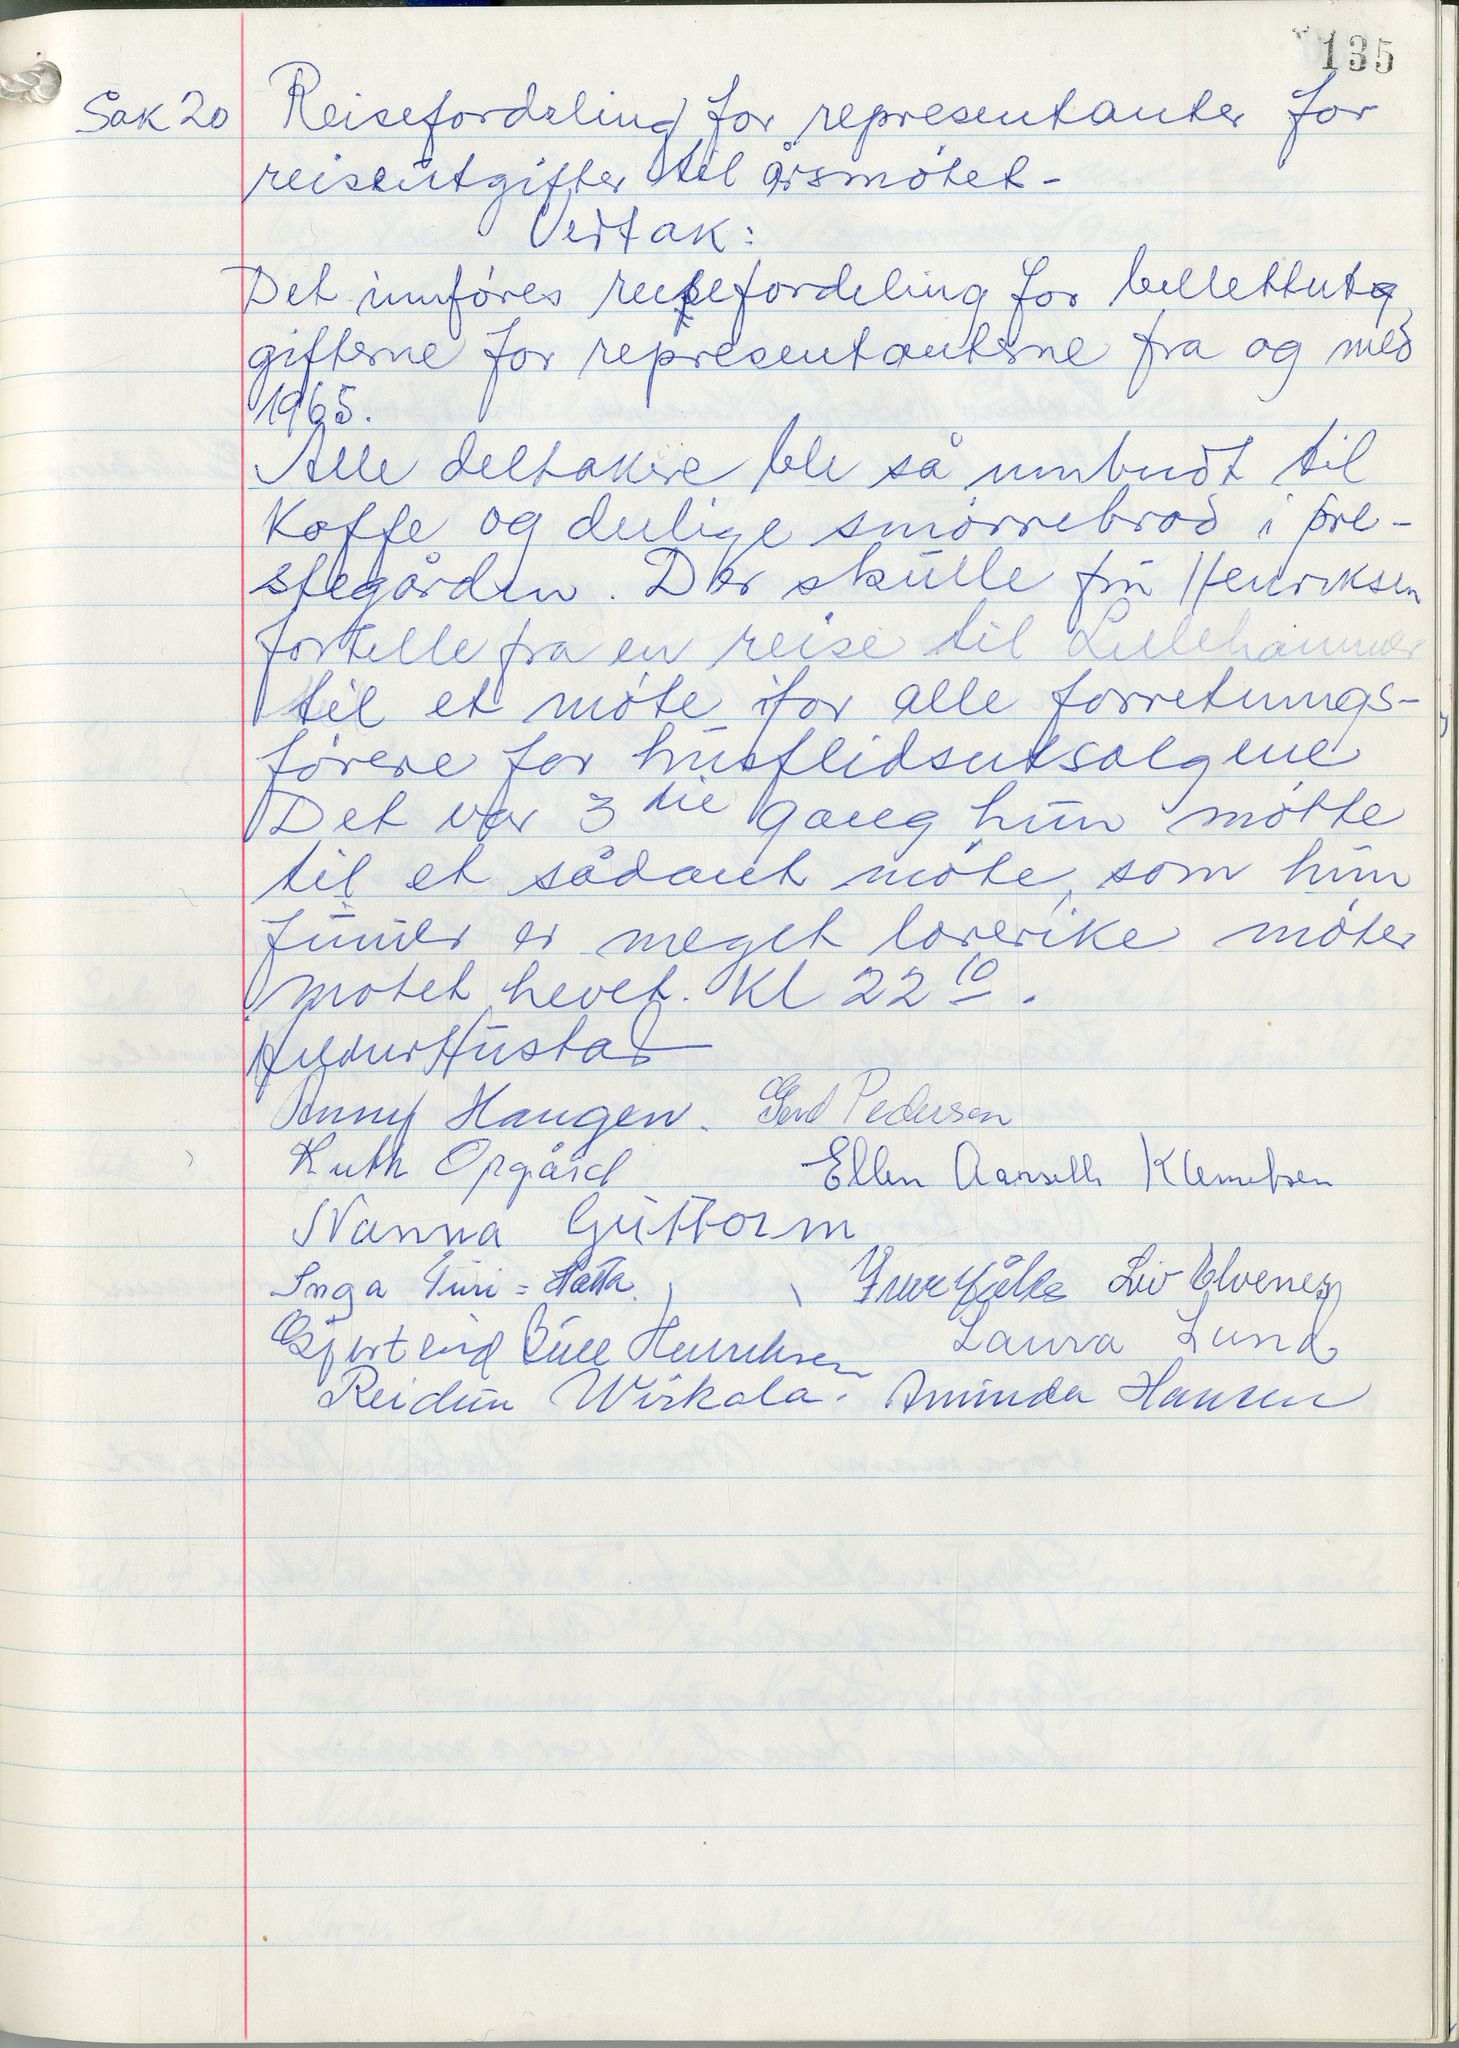 135
Sak 20 Reisefordeling for representanter for
reiseutgifter til årsmötet -
Vedtak:
Det innföres reisefordeling for billettutg
gifterne for representanterne fra og med
1965.
Alle deltakere ble så innbudt til
Kaffe og deilige smörrebröd i pre-
stegården. Der skulle fru Henriksen
fortelle fra en reise til Lillehammer
til et möte for alle forretnings-
förere for husflidsutsalgene
Det var 3 die gang hun mötte
til et sådant möte, som hun
finner er meget lærerike möter
mötet hevet. Kl 22 10.
Hildur Hustad
Anny Haugen. Gerd Pedersen
Ruth Opgård Ellen Aarseth Klemetsen
Nanna Guttorm
Inga Turi = Hætta. Liv Elvenes
Gjertrud Bull Henriksen Laura Lund
Reidun Wirkola. Aminda Hansen